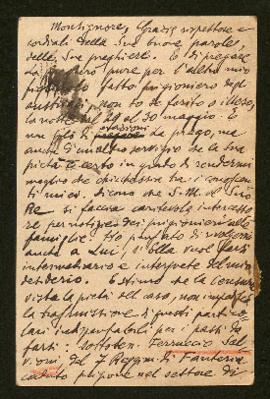 Monsignore, Grazie rispettose e
cordiali della Sua buona parola,
delle Sue preghiere. E di pregare
La pure per l'altro mio
figliolo fatto prigioniero dagl'
austriaci, non so se ferito o illeso,
la notte dal 29 al 30 maggio. E
non solo di orazioni La prego, ma
anche di un altro servizio che la Sua
pietà è certo in grado di rendermi
meglio che chicchessia tra i conoscenti
miei. Dicono che S. M. il Suo
Re si faccia caritevole intercessore
per notizie dei prigionieri alle
famiglie. Ho pensato di rivolgermi
anche a Lui, se Ella vuol farsi
intermediario e interprete del mio
desiderio. E stimo che la Censura
vista la pietà del caso, non impedirà
la trasmissione di questi particolari
indispensabili per i passi da
farsi: sottoten. Ferruccio Salvioni
del 7 Reggim. di Fanteria
caduto prigione nel settore di